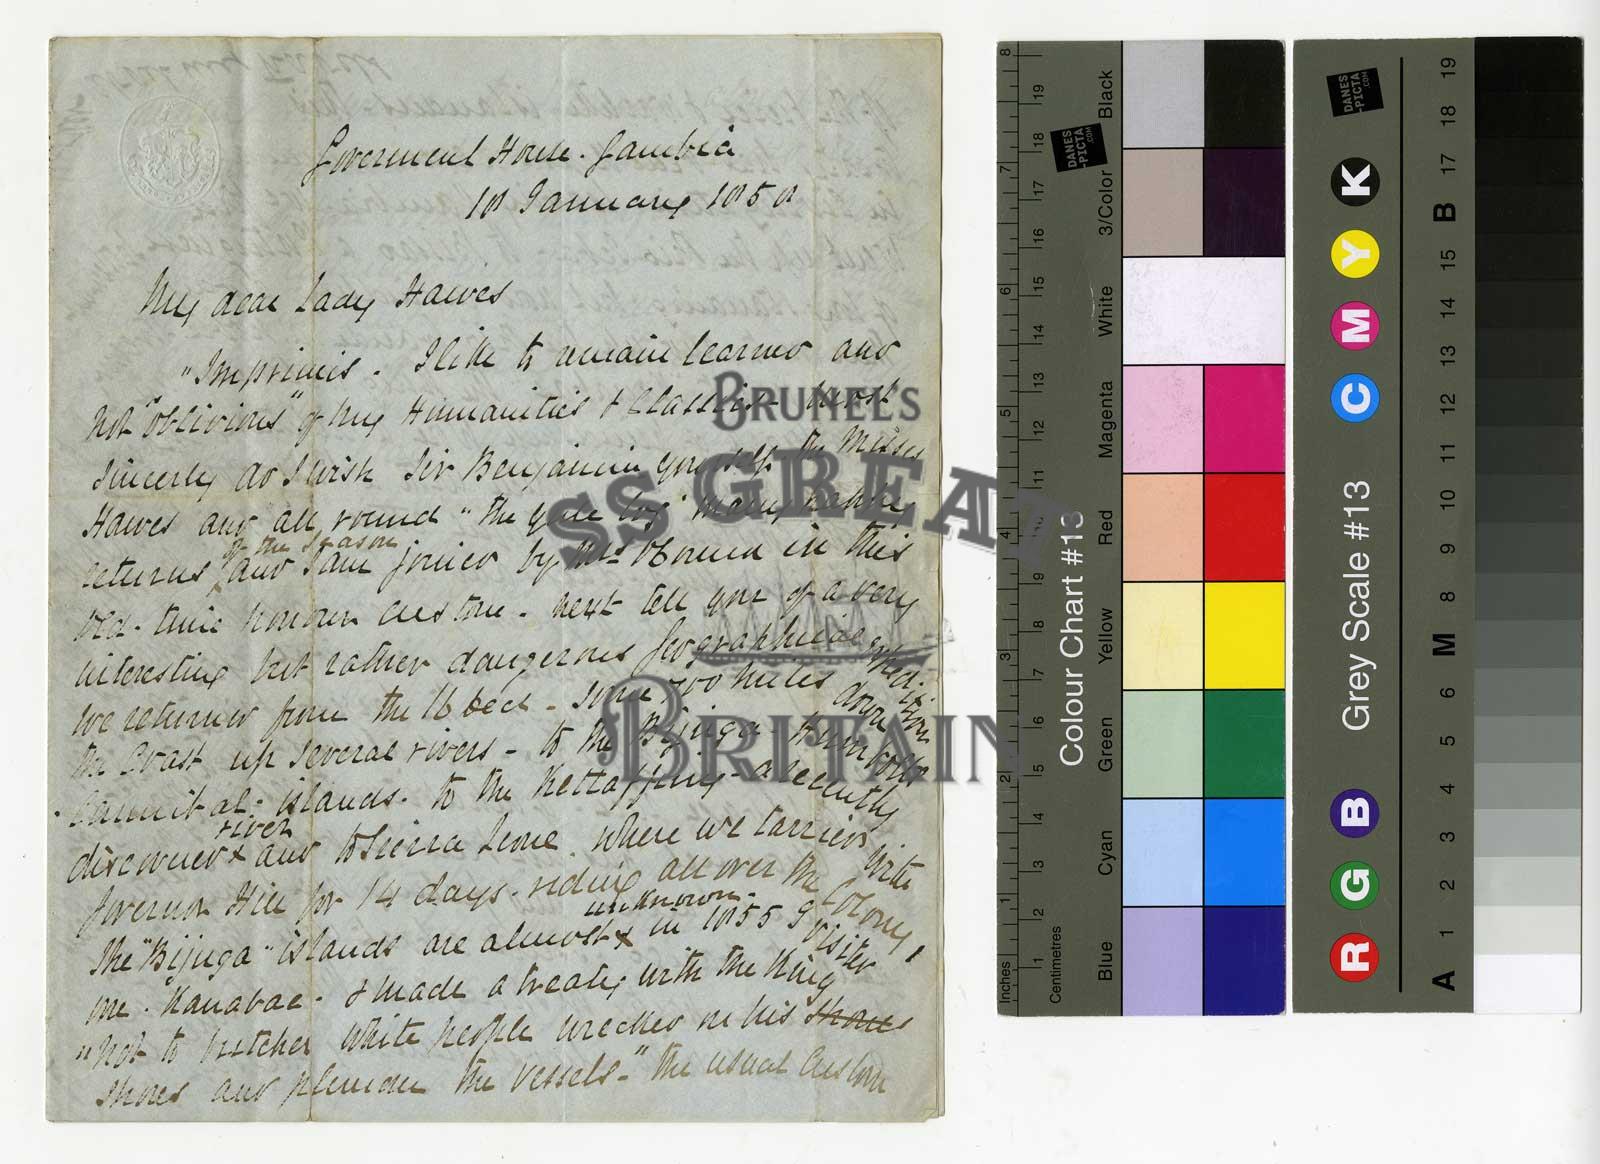 Government House. Gambia
1st January 1858
My dear Lady Hawes
"Imprimis. I like to remain learned and
not "oblivious" of my Humanities & Classics - most
sincerely do I wish Sir Benjamin yourself the Misses
Hawes and all round "the yule log" many happy
returns of the season and I am joined by Mrs O'Connor in this
old-time honour custom. next tell you of a very
interesting but rather dangerous Geographical expedition
we returned from the 16 Decr - some 700 miles down
the Coast up several rivers - to the Bijuga -
Cannibal islands. to the - a recently
discovered river and to Sierra Leone where we tarried with
Governor Hill for 14 days. riding all over the Colony,
The "Bijuga" islands are almost unknown in 1855 I visited
one. "Kanabac" - & made a treaty with the King
"not to butcher white people wrecked on his shores
shores and plunder the vessels." the usual custom
BRUNEL'S
SS GREAT
BRITAIN
Colour Chart #13
Inches
Centimetres
Blue
Cyan
Green
Yellow
Red
Magenta
White
3/Color
Black
DANES
-PICTA
.COM
1 2 3 4 5 6 7 8
1 2 3 4 5 6 7 8 9 11 12 13 14 15 16 17 18 19
Grey Scale #13
R G B C M Y K
DANES
-PICTA
.COM
A 1 2 3 4 5 6 M 8 9 10 11 12 13 14 15 B 17 18 19